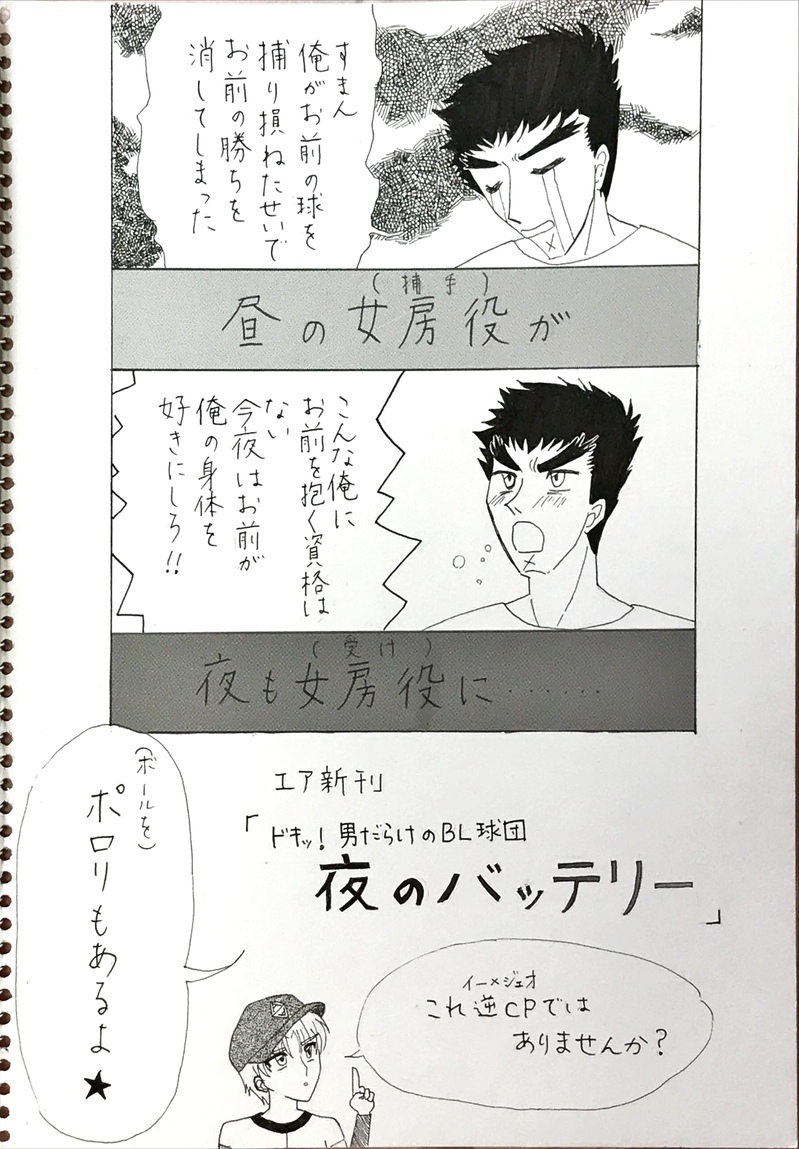 すまん
俺がお前の球を
捕り損ねたせいで
お前の勝ちを
消してしまった
(捕手)
昼の女房役が
こんな俺に
お前を抱く資格は
ない
今夜はお前が
俺の身体を
好きにしろ!!
(受け)
夜も女房役に・・・・・・
エア新刊
「ドキッ!男だらけのBL球団
夜のバッテリー」
(ボールを)
ポロリもあるよ★
イー×ジェオ
これ逆CPでは
ありませんか?